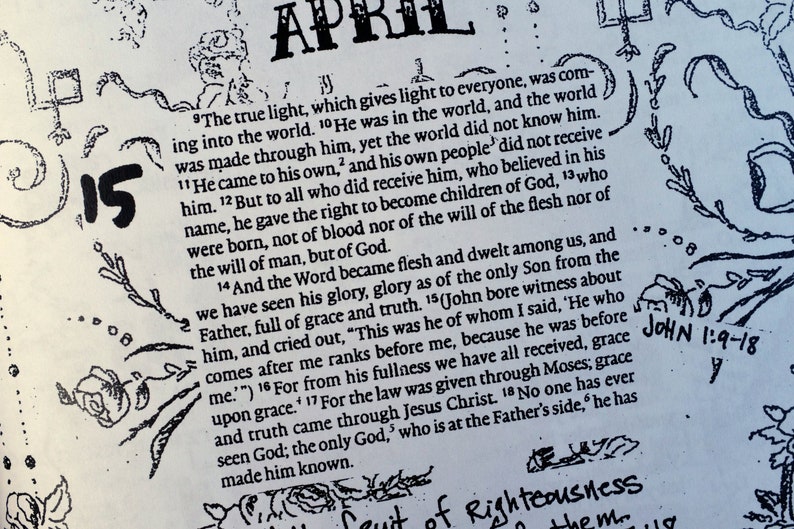 APRIL
15
⁹The true light, which gives light to everyone, was com-
ing into the world. ¹⁰He was in the world, and the world
was made through him, yet the world did not know him.
¹¹He came to his own,² and his own people³ did not receive
him. ¹²But to all who did receive him, who believed in his
name, he gave the right to become children of God, ¹³who
were born, not of blood nor of the will of the flesh nor of
the will of man, but of God.
¹⁴And the Word became flesh and dwelt among us, and
we have seen his glory, glory as of the only Son from the
Father, full of grace and truth. ¹⁵(John bore witness about
him, and cried out, “This was he of whom I said, ‘He who
comes after me ranks before me, because he was before
me.’”) ¹⁶For from his fullness we have all received, grace
upon grace.⁴ ¹⁷For the law was given through Moses; grace
and truth came through Jesus Christ. ¹⁸No one has ever
seen God; the only God,⁵ who is at the Father’s side,⁶ he has
made him known.
JOHN 1:9-18
fruit of Righteousness
them.